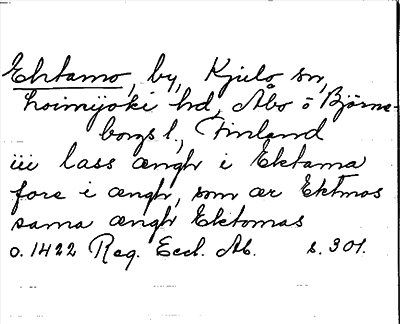 Ektamo, by, Kjulo sn,
Loimijoki hd, Åbo o Björne-
borgs l, Finland
iii lass ængh i Ektama
fore i ængh, som ær Ektmos
sama ængh Ektomas
o. 1422 Reg. Eccl. Ab. s. 301.